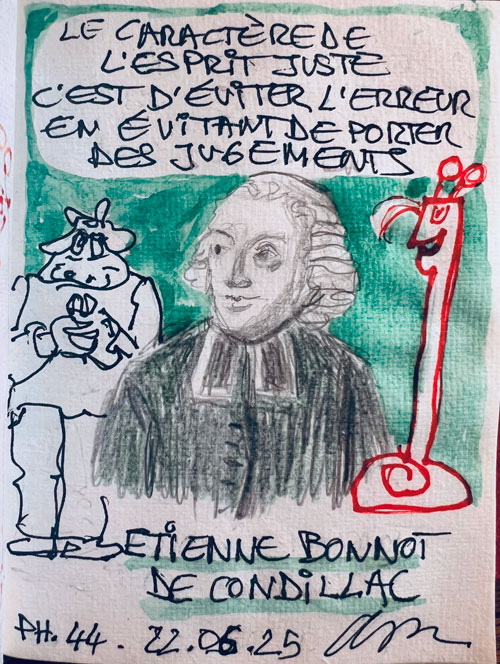 LE CARACTÈRE DE
L'ESPRIT JUSTE
C'EST D'ÉVITER L'ERREUR
EN ÉVITANT DE PORTER
DES JUGEMENTS
ETIENNE BONNOT
DE CONDILLAC
PH. 44. 22.06.25